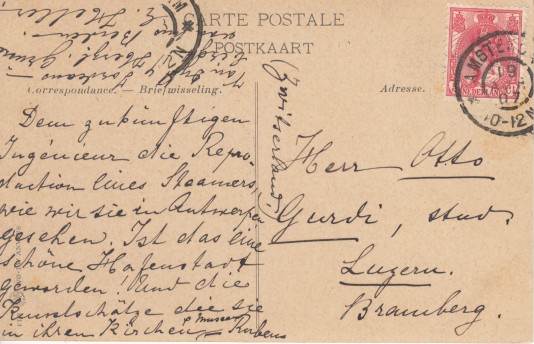 CARTE POSTALE
POSTKAART
Correspondance. — Briefwisseling.
Adresse.
Dem zukünftigen
Ingénieur die Repro-
duction eines Steamers,
wie wir sie in Antwerpen
gesehen. Ist das eine
schöne Hafenstadt
geworden! Und die
Kunstschätze die sie
in ihren Kirchen Museen Rubens
(Zwitserland.)
Herr Otto
Gurdi, stud.
Luzern.
Bramberg.
NEDERLAND
AMSTERD
10-12N